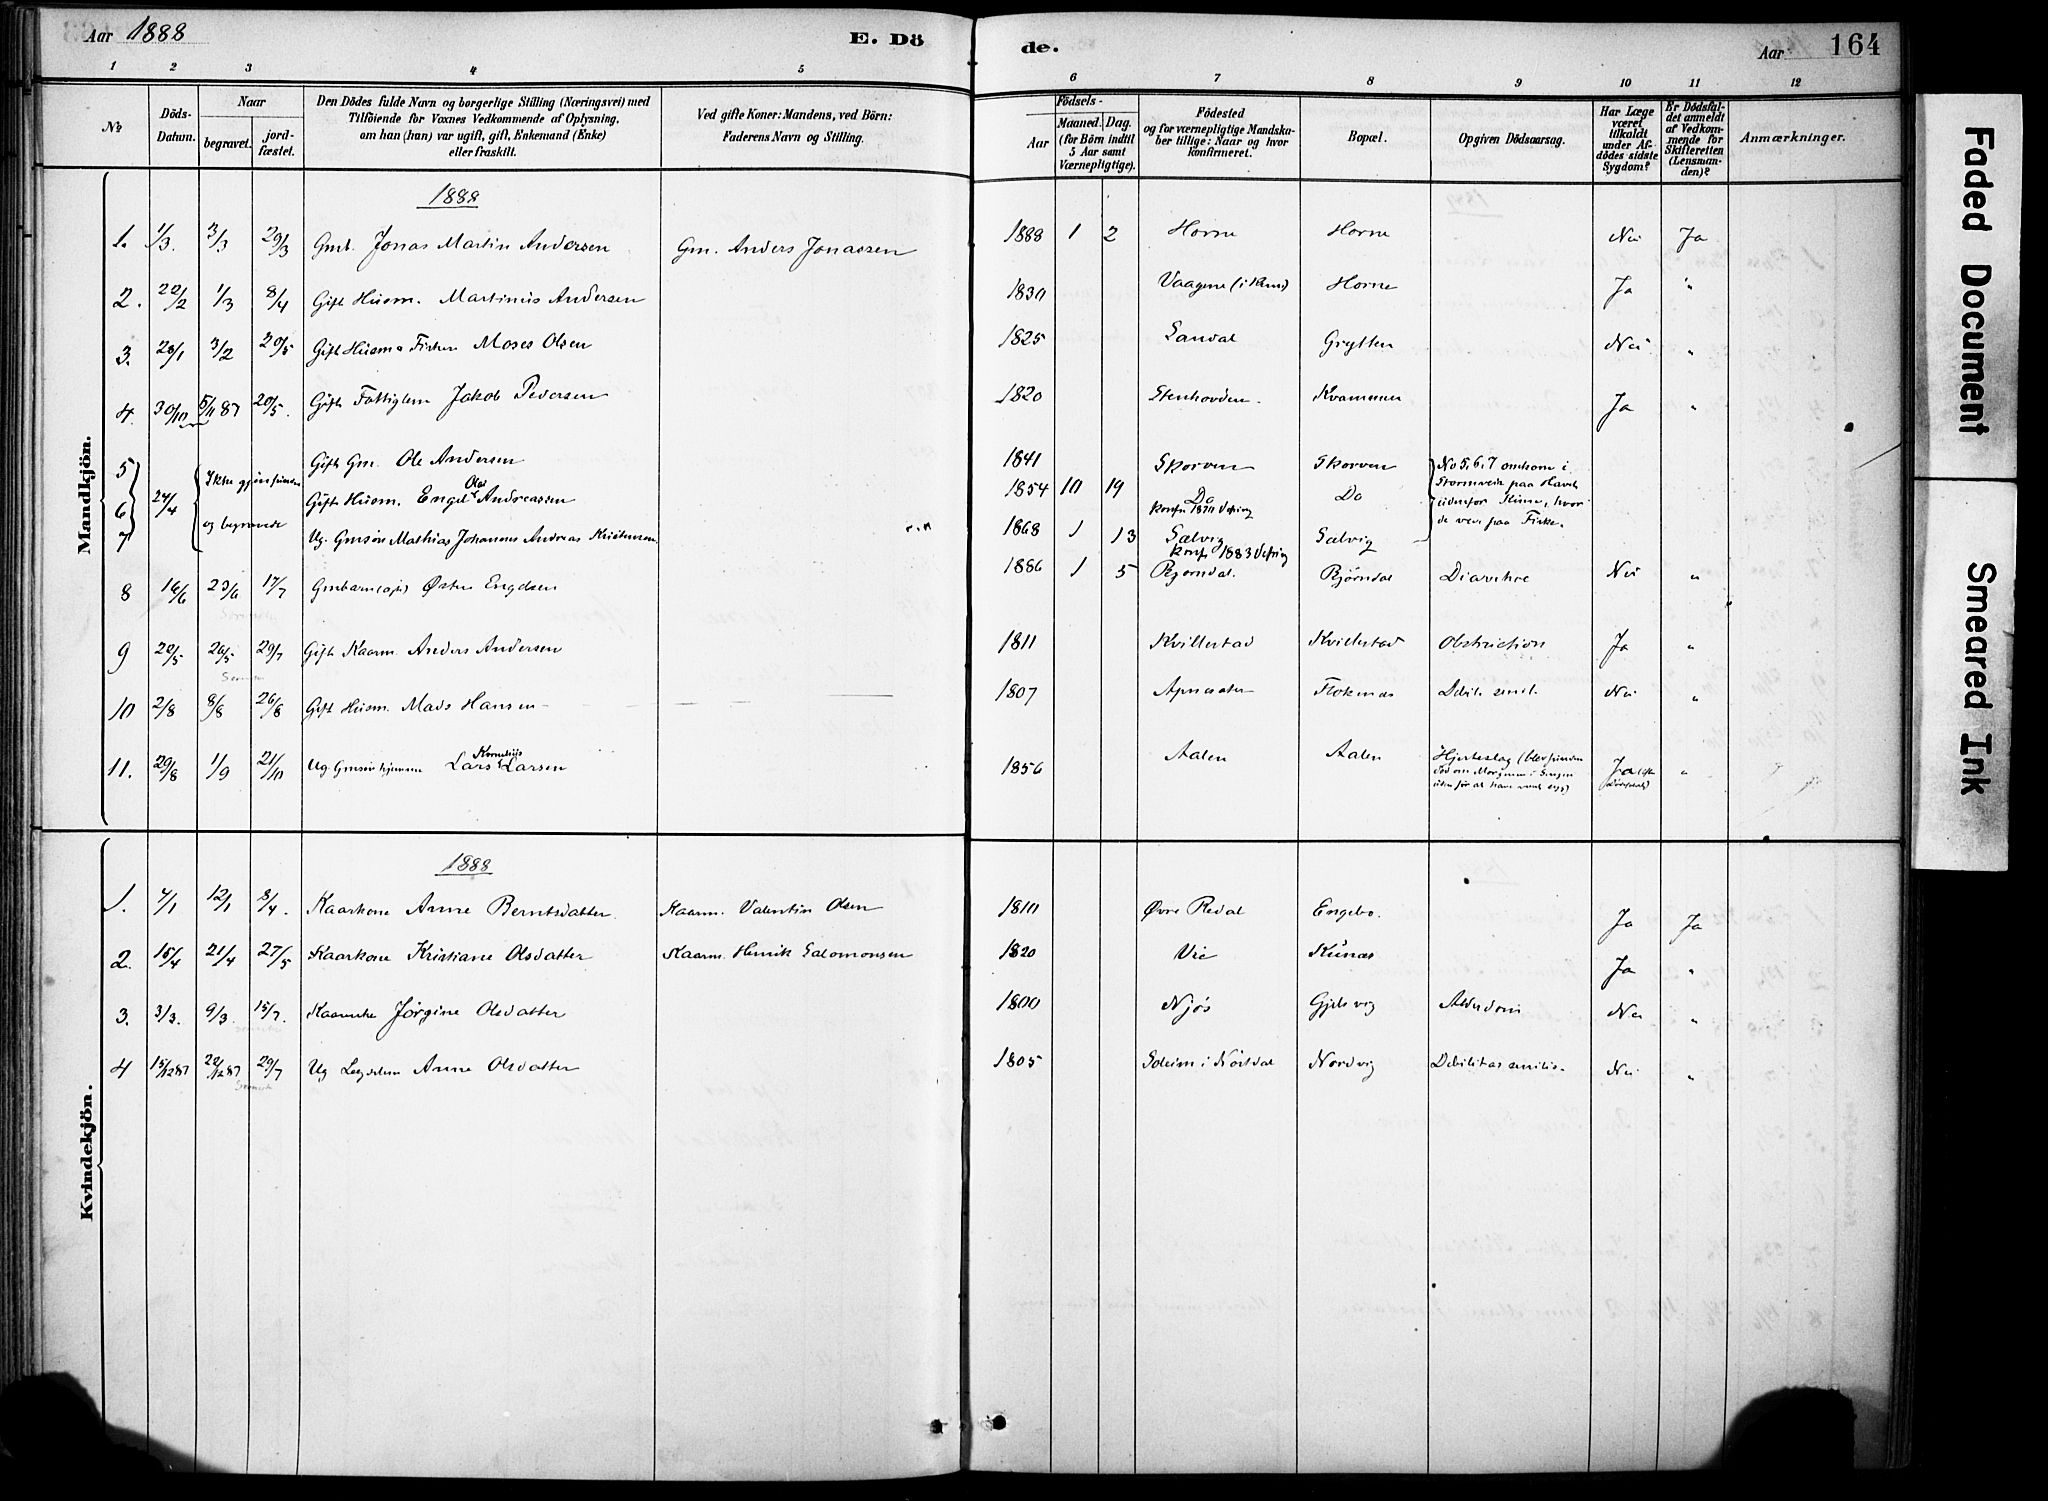 Aar 1888
E. Dö
de.
Aar
164
1 2 3 4 5 6 7 8 9 10 11 12
№
Döds-Datum.
Naar
begravet.
jord-fæstet.
Den Dödes fulde Navn og borgerlige Stilling (Næringsvei) med
Tilföiende for Voxnes Vedkommende af Oplysning,
om han (hun) var ugift, gift, Enkemand (Enke)
eller fraskilt.
Ved gifte Koner: Mandens, ved Börn:
Faderens Navn og Stilling.
Födsels-
Aar
Maaned. Dag.
(for Börn indtil
5 Aar samt
Værnepligtige).
Födested
og for værnepligtige Mandska-
ber tillige: Naar og hvor
konfirmeret.
Bopæl.
Opgiven Dödsaarsag.
Har Læge
været
tilkaldt
under Af-
dödes sidste
Sygdom?
Er Dödsfal-
det anmeldt
af Vedkom-
mende for
Skifteretten
(Lensman-
den)?
Anmærkninger.
Mandkjön.
1888
1. 1/3. 3/3 29/3 Gmb. Jonas Martin Andersen Gm. Anders Jonassen 1888 1 2 Horne Horne Nei Ja
2. 22/2 1/3 8/4 Gift Husm. Martinus Andersen 1830 Vaagene Horne Ja "
3. 28/1 3/2 20/5 Gift Husm Moses Olsen 1825 Sandal Grytten Nei "
4. 30/10 5/11 87 20/5. Gift Fattiglem Jakob Pedersen 1820 Stenhovden. Kvammen Ja "
5 Gift Gm. Ole Andersen 1841 Skorven Skorven No 5, 6, 7 omkom i
6 24/4 Ikke gjenfundne Gift Husm. Engel Olai Andreassen 1854 10 19 Do Do Stormveir paa Havet
konf. 1870 udenfor Kinn, hvor
7 og begravede Ug. Gmsøn Mathias Johannes Andreas Kristensen 1868 1 13 Sælvig Sælvig de vare paa Fiske.
konf. 1883
8 16/6 23/6 17/7 Gmbarn Østen Engelsen 1886 1 5 Bjørndal. Bjørndal Diarrhoe Nei "
9 22/5 26/5 29/7 Gift Kaarm. Anders Andersen 1811 Kvillestad Kvillestad Obstruction Ja "
10 2/8 8/8 26/8 Gift Husm. Mads Hansen 1807 Apnesæter Flokenæs Debil. senil. Nei "
11. 29/8 1/9 21/10 Ug Gmsøn Lars Kornelius Larsen 1856 Aalen Aalen Hjerteslag Ja "
Kvindekjön.
1888
1. 4/1 12/1 8/4. Kaarkone Anne Berntsdatter Kaarm. Valentin Olsen 1810 Øvre Redal Engebø. Ja Ja
2. 15/4 21/4 27/5 Kaarkone Kristiane Olsdatter Kaarm. Henrik Salomonsen 1820 Vie Kunæs Ja "
3. 3/3. 9/3. 15/7. Kaarenke Jørgine Olsdatter 1800 Njøs Gjelsvig Alderdom Nei "
4 15/12 87 22/12 87 29/7 Ug Anne Olsdatter 1805 Soleim i Nøstdal Nordvig Debilitas senilis. Nei "
Faded Document
Smeared Ink